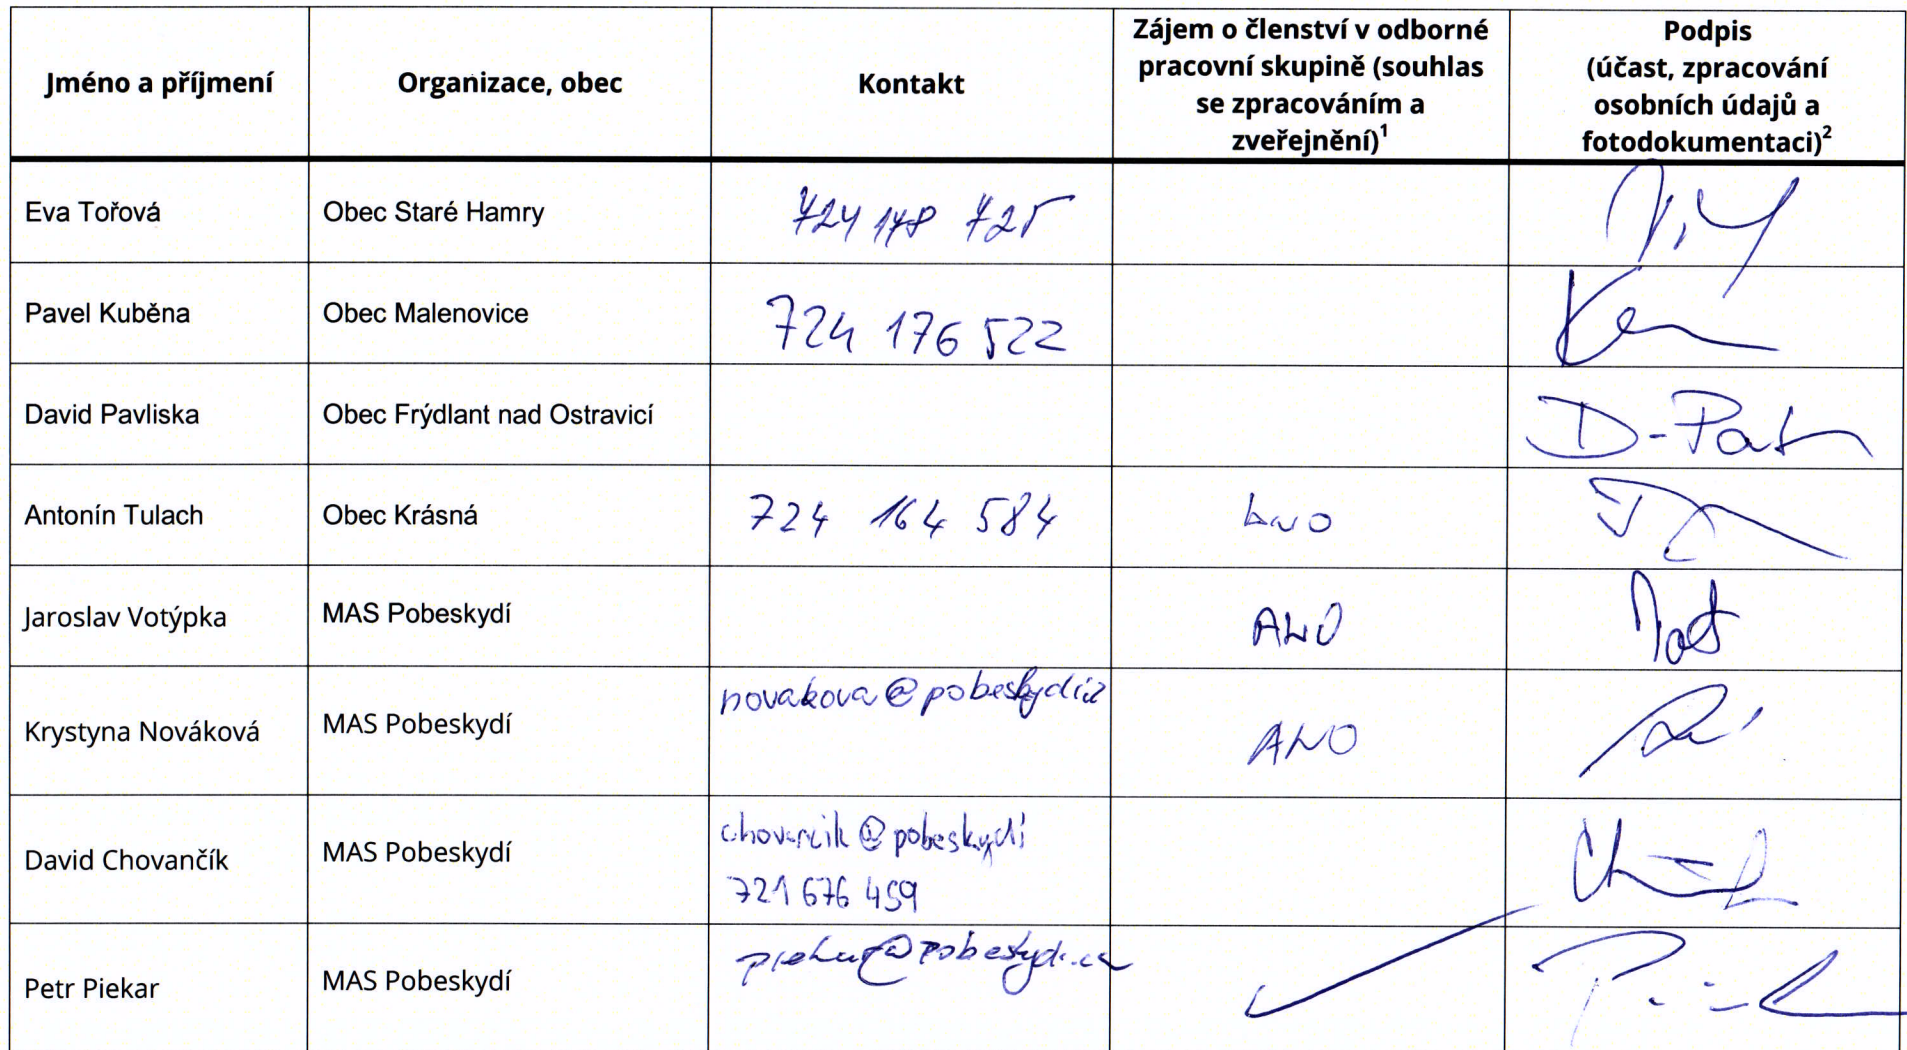 Jméno a příjmení
Organizace, obec
Kontakt
Zájem o členství v odborné
pracovní skupině (souhlas
se zpracováním a
zveřejnění)¹
Podpis
(účast, zpracování
osobních údajů a
fotodokumentaci)²
Eva Tořová
Obec Staré Hamry
724 178 725
Pavel Kuběna
Obec Malenovice
724 176 522
David Pavliska
Obec Frýdlant nad Ostravicí
Antonín Tulach
Obec Krásná
724 164 584
ANO
Jaroslav Votýpka
MAS Pobeskydí
ANO
Krystyna Nováková
MAS Pobeskydí
ANO
David Chovančík
MAS Pobeskydí
chovancik@pobeskydi
721 676 459
Petr Piekar
MAS Pobeskydí